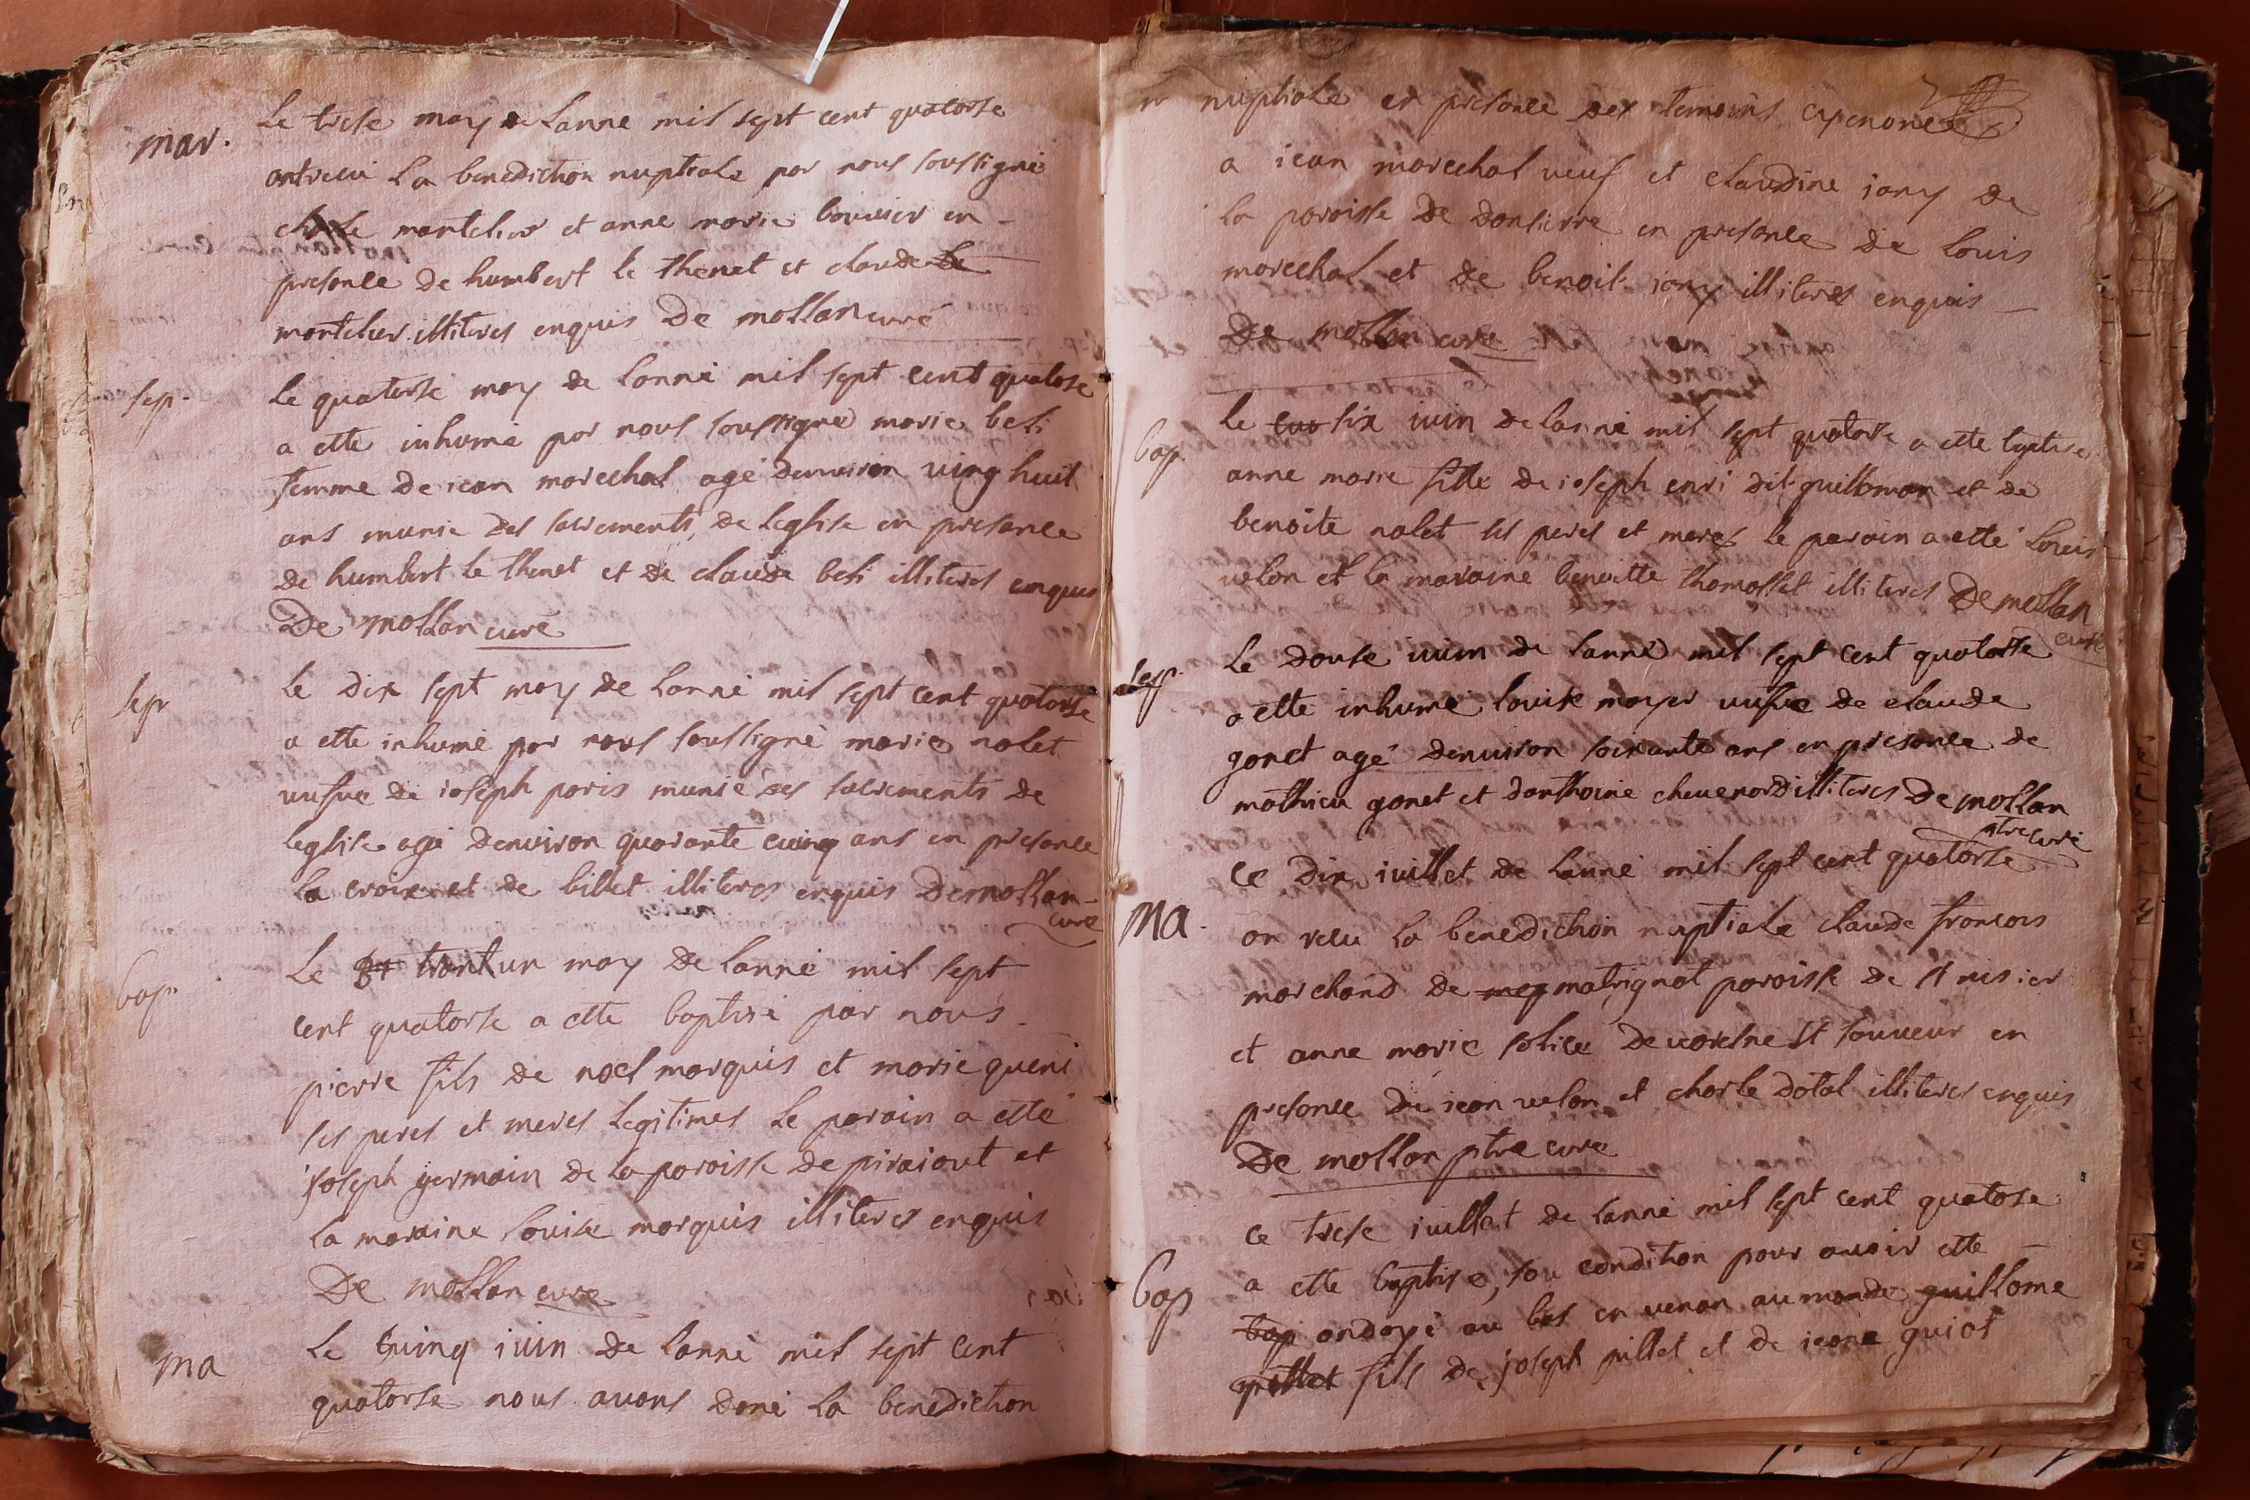 mar.
Le trese may de Lanne mil sept cent quatorse
ont recu La benediction nuptiale par nous soussigné
montelier et anne marie bouvier en
presance de humbert le thenet et claude de
montelier illiteres enquis De mollan curé
sep.
le quatorse may de Lanné mil sept cent quatorse
a etté inhumé par nous soussigné marie beli
femme de iean marechal agé denviron ving huit
ans munie des sacrements de leglise en presance
de humbert le thenet et de claude beli illiteres enquis
De mollan curé
sep
le dix sept may de Lanné mil sept cent quatorse
a etté inhumé par nous soussigné marie nolet
vefue de ioseph paris munie des sacrements de
leglise agé denviron quarante cuinq ans en presance
la croix et de billet illiteres enquis De mollan
curé
bap.
Le trant un may de Lanné mil sept
cent quatorse a etté baptisé par nous
pierre fils de noel marquis et marie queni
ses peres et meres Legitimes Le parain a etté
joseph germain de la paroisse de piraiout et
la maraine louise marquis illiteres enquis
De mollan curé
ma
Le cuinq iuin de Lanné mil sept cent
quatorse nous avons doné La benediction
nuptiale en presance des temoins
a iean marechal veuf et claudine iany de
la paroisse de donsierre en presance de louis
marechal et de benoit iany illiteres enquis
De mollan curé
bap.
Le six iuin de lanné mil sept quatorse a etté baptisé
anne marie fille de ioseph enri dit guilloman et de
benoite nolet ses peres et meres le parain a etté Louis
velon et la maraine benoitte thomasset illiteres De mollan
curé
sep.
Le douse iuin de lanné mil sept cent quatorse
a etté inhumé louise mayer vefue de claude
gonet agé denviron soixante ans en presance de
mathieu gonet et danthoine chevenard illiteres De mollan
ptre curé
Ma.
Ce dix iuillet de Lanné mil sept cent quatorse
on recu la benediction nuptiale claude francois
marchand de matrignat paroisse de st nisier
et anne marie solice De st sauveur en
presance de iean velon et charle dotal illiteres enquis
De mollan ptre curé
bap
Ce trese iuillet de Lanné mil sept cent quatorse
a etté baptise, sou condition pour avoir etté
bap ondoyé au bas en venan au monde guillome
fils de joseph pillet et de ieane guiot